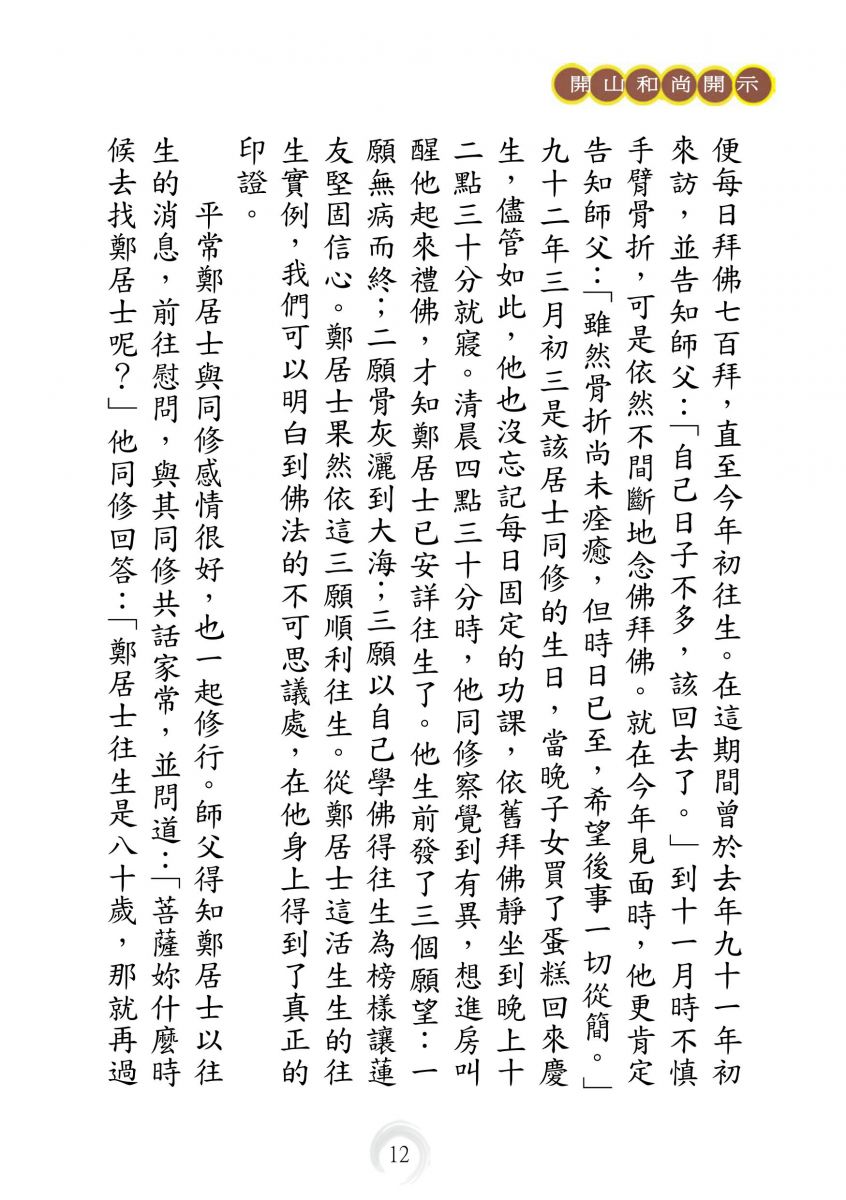 開山和尚開示
便每日拜佛七百拜，直至今年初往生。在這期間曾於去年九十一年初
來訪，並告知師父：「自己日子不多，該回去了。」到十一月時不慎
手臂骨折，可是依然不間斷地念佛拜佛。就在今年見面時，他更肯定
告知師父：「雖然骨折尚未痊癒，但時日已至，希望後事一切從簡。」
九十二年三月初三是該居士同修的生日，當晚子女買了蛋糕回來慶
生，儘管如此，他也沒忘記每日固定的功課，依舊拜佛靜坐到晚上十
二點三十分就寢。清晨四點三十分時，他同修察覺到有異，想進房叫
醒他起來禮佛，才知鄭居士已安詳往生了。他生前發了三個願望：一
願無病而終；二願骨灰灑到大海；三願以自己學佛得往生為榜樣讓蓮
友堅固信心。鄭居士果然依這三願順利往生。從鄭居士這活生生的往
生實例，我們可以明白到佛法的不可思議處，在他身上得到了真正的
印證。
平常鄭居士與同修感情很好，也一起修行。師父得知鄭居士以往
生的消息，前往慰問，與其同修共話家常，並問道：「菩薩妳什麼時
候去找鄭居士呢？」他同修回答：「鄭居士往生是八十歲，那就再過
12